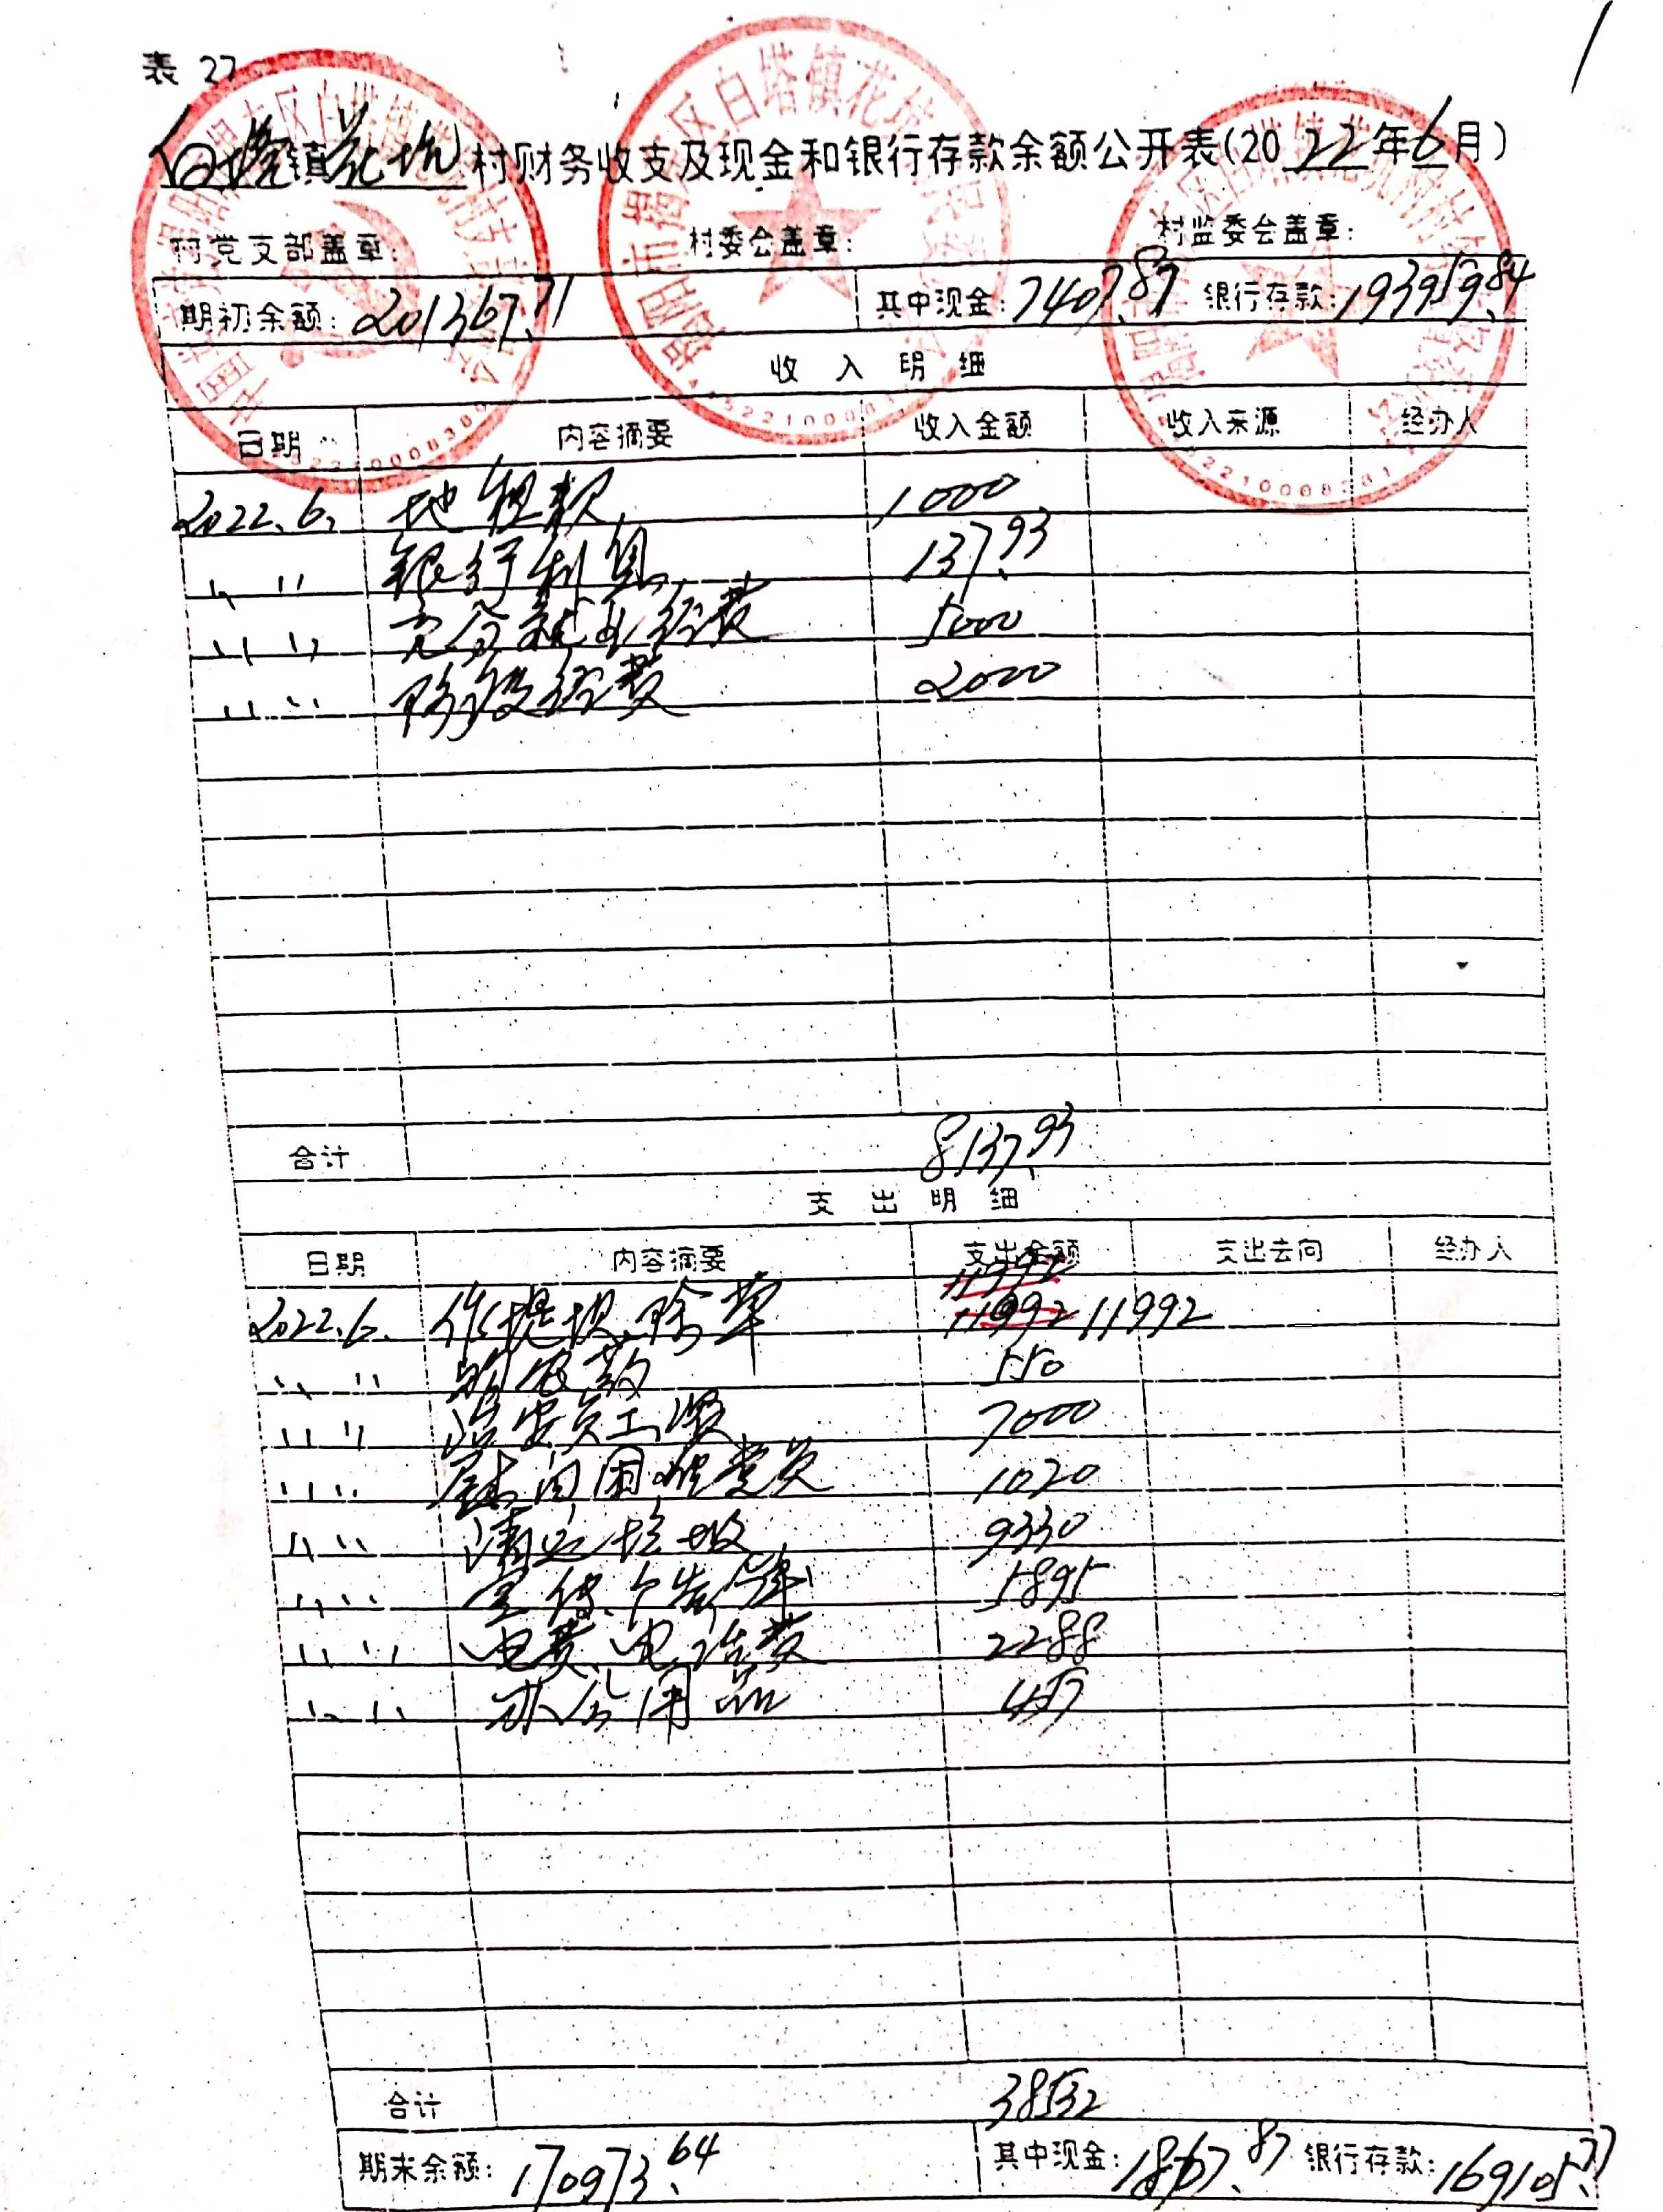 表 27
白塔镇花坑村财务收支及现金和银行存款余额公开表(2022年6月)
村党支部盖章: 村委会盖章: 村监委会盖章:
期初余额: 201367.71 其中现金: 7407.87 银行存款: 193959.84
收入明细
日期 内容摘要 收入金额 收入来源 经办人
2022.6. 地租款 1000
〃 〃 银行利息 137.93
〃 〃 充分就业经费 5000
〃 〃 阶段经费 2000
合计 8137.93
支出明细
日期 内容摘要 支出金额 支出去向 经办人
2022.6. 作堤坝、除草 11992 11992
〃 〃 购农药 550
〃 〃 治安员工资 7000
〃 〃 慰问困难党员 1020
〃 〃 清运垃圾 9330
〃 〃 宣传、广告牌 5895
〃 〃 电费、电话费 2288
〃 〃 办公用品 457
合计 38532
期末余额: 170973.64 其中现金: 1867.87 银行存款: 169105.77